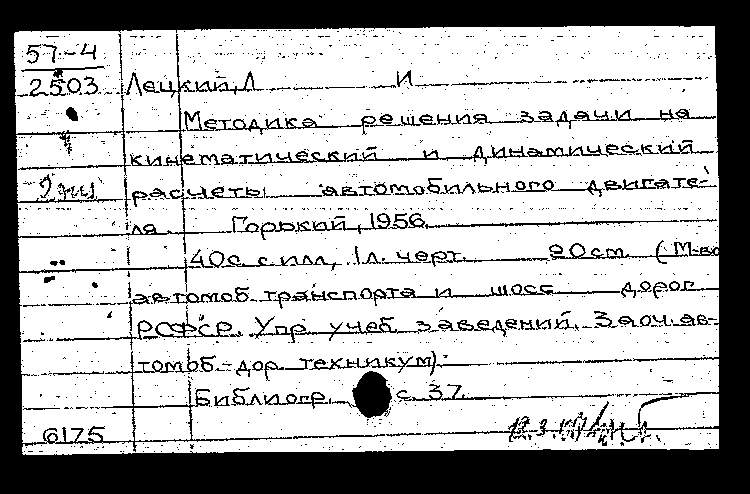 57-4
2503
Лецкий, Л И
Методика решения задачи на
кинематический и динамический
2 экз расчеты автомобильного двигате-
ля. Горький, 1956.
40с. с илл, 1л. черт. 20см. (М-во
автомоб. транспорта и шосс дорог
РСФСР. Упр. учеб. заведений. Заоч. ав-
томоб.-дор. техникум).
Библиогр. с. 37.
6175